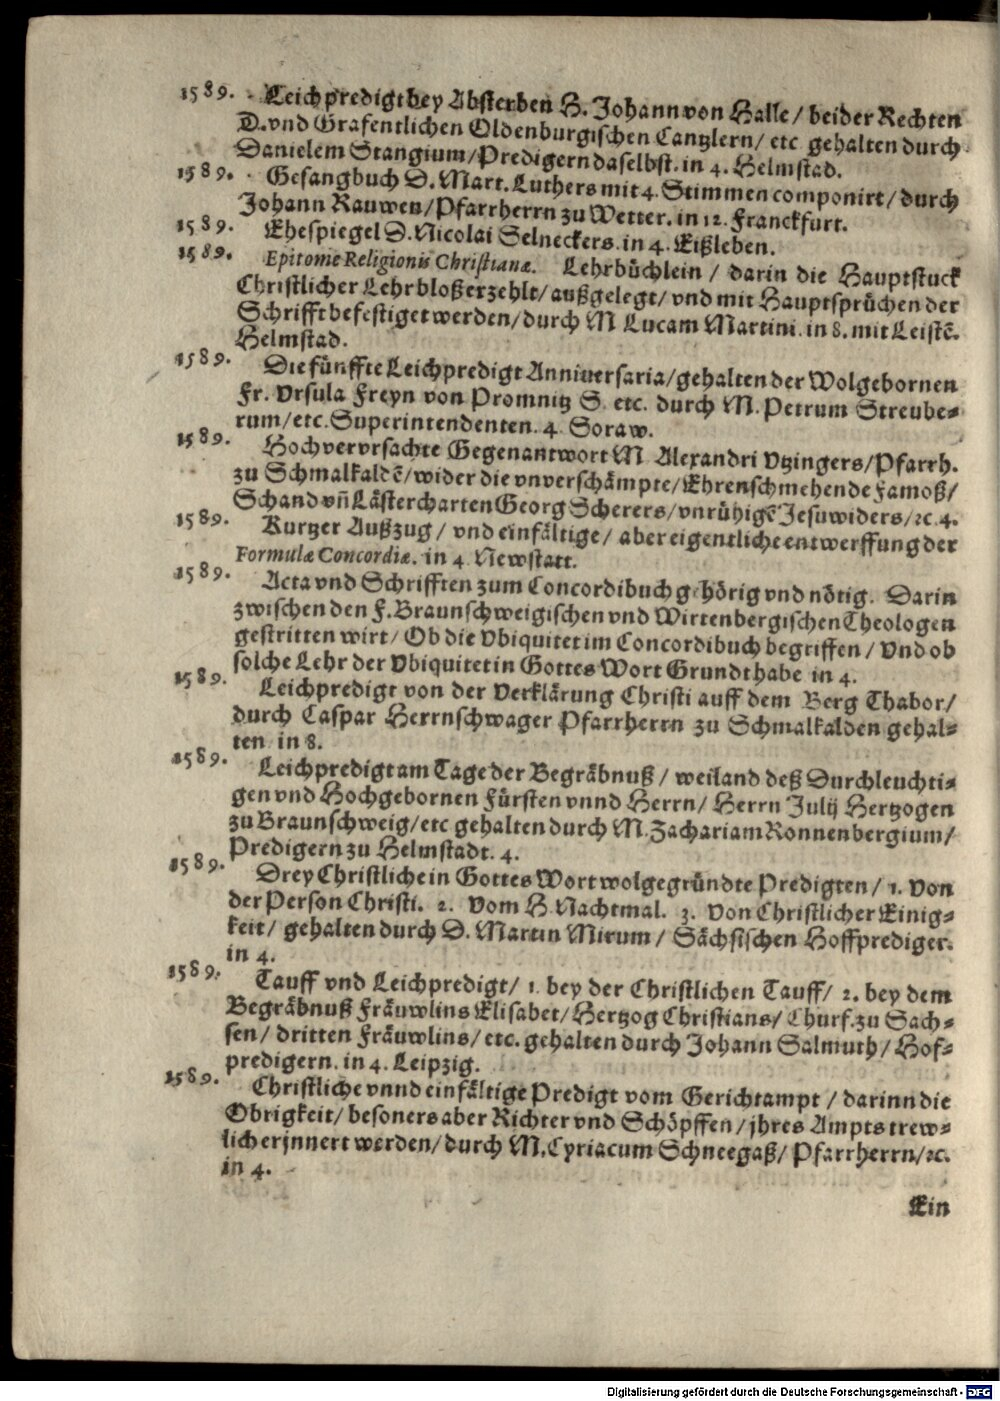 1589. Leichpredigt bey Absterben H. Johann von Halle / beider Rechten
D. vnd Grafentlichen Oldenburgischen Cantzlern / etc gehalten durch
Danielem Stangium / Predigern daselbst. in 4. Helmstad.
1589. Gesangbuch D. Mart. Luthers mit 4. Stimmen componirt / durch
Johann Rauwen / Pfarrherrn zu Wetter. in 12. Franckfurt.
1589. Ehespiegel D. Nicolai Selneckers. in 4. Eißleben.
1589. Epitome Religionis Christianæ. Lehrbüchlein / darin die Hauptstuck
Christlicher Lehr bloß erzehlt / außgelegt / vnd mit Hauptsprüchen der
Schrifft befestiget werden / durch M Lucam Martini. in 8. mit Leistē.
Helmstad.
1589. Die fünffte Leichpredigt Anniversaria / gehalten der Wolgebornen
Fr. Vrsula Freyn von Promnitz S. etc. durch M. Petrum Streube-
rum / etc. Superintendenten. 4. Soraw.
1589. Hochvervrsachte Gegenantwort M Alexandri Vtzingers / Pfarrh.
zu Schmalkaldē / wider die vnverschämpte / Ehrenschmehende Famoß /
Schand vñ Lästercharten Georg Scherers / vnrühigē Jesuwiders / ꝛc. 4.
1589. Kurtzer Außzug / vnd einfältige / aber eigentliche entwerffung der
Formulæ Concordiæ. in 4 Newstatt.
1589. Acta vnd Schrifften zum Concordibuch g hörig vnd nötig. Darin
zwischen den F. Braunschweigischen vnd Wirtenbergischen Theologen
gestritten wirt / Ob die Vbiquitet im Concordibuch begriffen / Vnd ob
solche Lehr der Vbiquitet in Gottes Wort Grundt habe in 4.
1589. Leichpredigt von der Verklärung Christi auff dem Berg Thabor /
durch Caspar Herrnschwager Pfarrherrn zu Schmalkalden gehal-
ten in 8.
1589. Leichpredigt am Tage der Begräbnuß / weiland deß Durchleuchti-
gen vnd Hochgebornen Fürsten vnnd Herrn / Herrn Julij Hertzogen
zu Braunschweig / etc gehalten durch M. Zachariam Ronnenbergium /
Predigern zu Helmstadt. 4.
1589. Drey Christliche in Gottes Wort wolgegründte Predigten / 1. Von
der Person Christi. 2. Vom H. Nachtmal. 3. Von Christlicher Einig-
keit / gehalten durch D. Martin Mirum / Sächsischen Hoffprediger.
in 4.
1589. Tauff vnd Leichpredigt / 1. bey der Christlichen Tauff / 2. bey dem
Begräbnuß Fräuwlins Elisabet / Hertzog Christians / Churf. zu Sach-
sen / dritten Fräuwlins / etc. gehalten durch Johann Salmuth / Hof-
predigern. in 4. Leipzig.
1589. Christliche vnnd einfältige Predigt vom Gerichtampt / darinn die
Obrigkeit / besoners aber Richter vnd Schöpffen / jhres Ampts trew-
lich erjnnert werden / durch M. Cyriacum Schneegaß / Pfarrherrn / ꝛc.
in 4.
Ein
Digitalisierung gefördert durch die Deutsche Forschungsgemeinschaft - DFG